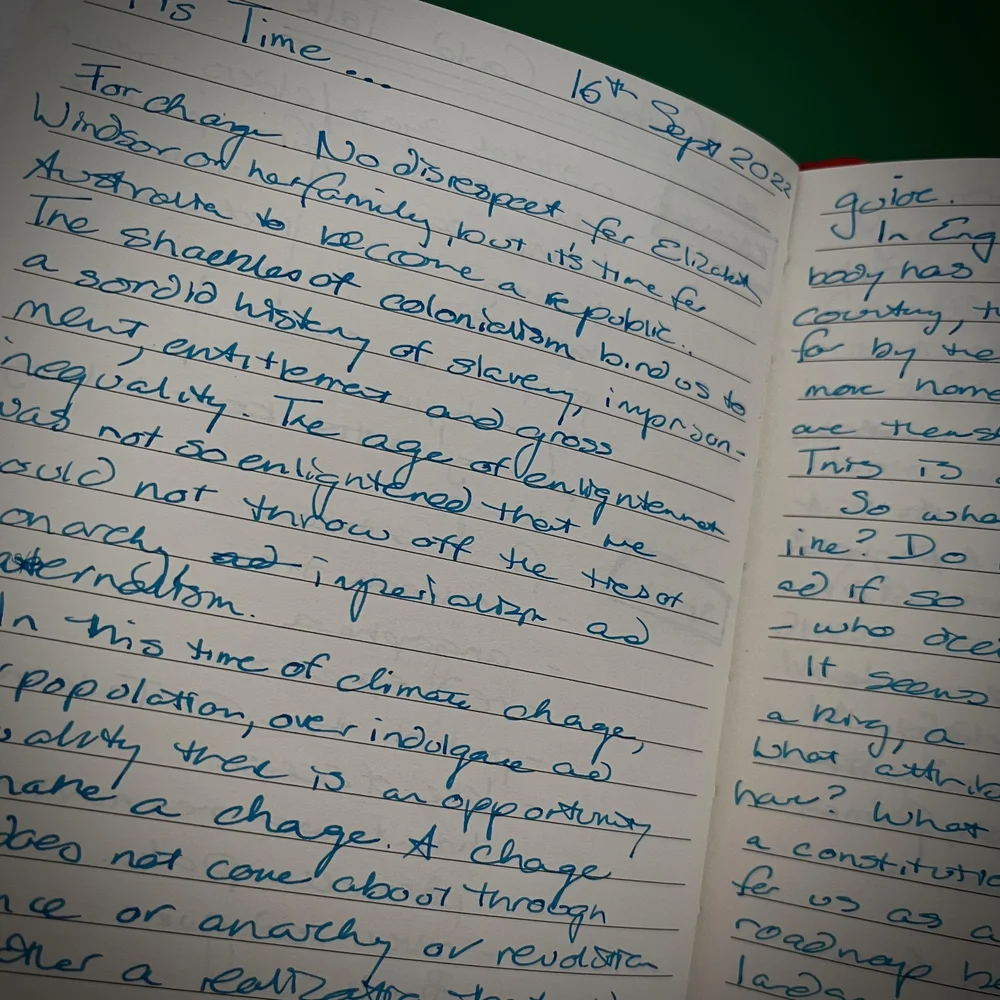 Time ...
16th Sept 2022
For change. No disrespect for Elizabeth
Windsor or her family, but it's time for
Australia to become a republic.
The shackles of colonialism bind us to
a sordid history of slavery, imprison-
ment, entitlement and gross
inequality. The age of enlightenment
was not so enlightened that we
could not throw off the ties of
monarchy imperialism ad
In this time of climate change,
population, over indulgance ad
there is an opportunity
make a change. A change
does not come about through
or anarchy or revolution
a realization that
guide.
In Eng
body has
country, th
far by the
more home
are themse
This is
So wha
line? Do
ad if so
- who
It seems
a King, a
what attrib
have? What
a constitutio
for us as a
roadmap